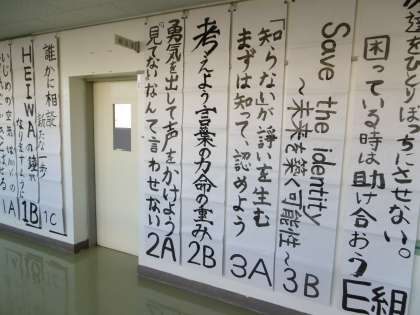 1A
HEIWAの鐘が
1B
誰かに相談
新たな一歩
1C
勇気を出して声をかけよう
「見てない」なんて、言わせない
2A
考えよう言葉の力命の重み
2B
「知らない」が諍いを生む
まずは知って、認めよう
3A
Save the identity
～未来を築く可能性～
3B
達をひとりぼっちにさせない。
困っている時は助け合おう
E組